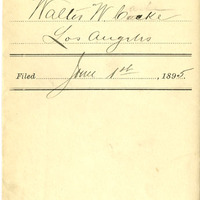 Walter W. Cocke
Los Angeles
Filed June 1st, 1895.